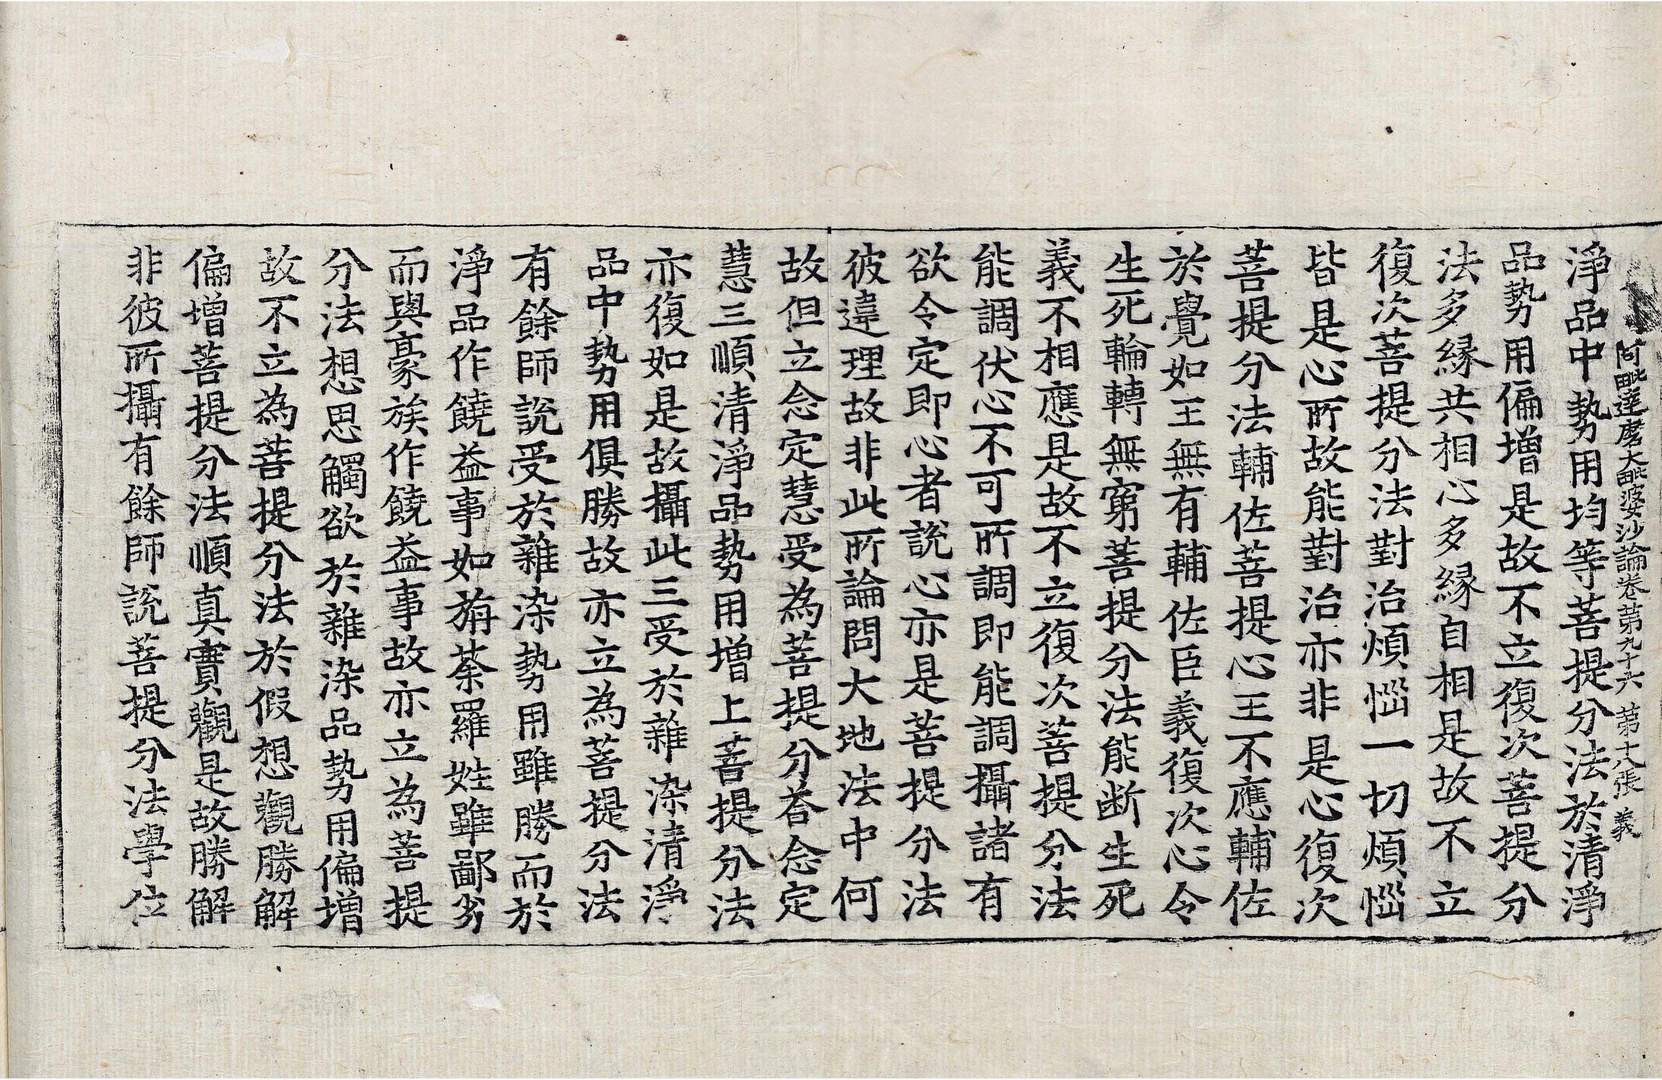 阿毗達磨大毗婆沙論卷第九十六 第十八張 義
淨品中勢用均等菩提分法於清淨
品勢用偏增是故不立復次菩提分
法多緣共相心多緣自相是故不立
復次菩提分法對治煩惱一切煩惱
皆是心所故能對治亦非是心復次
菩提分法輔佐菩提心王不應輔佐
於覺如王無有輔佐臣義復次心令
生死輪轉無窮菩提分法能斷生死
義不相應是故不立復次菩提分法
能調伏心不可所調即能調攝諸有
欲令定即心者說心亦是菩提分法
彼違理故非此所論問大地法中何
故但立念定慧受為菩提分荅念定
慧三順清淨品勢用增上菩提分法
亦復如是故攝此三受於雜染清淨
品中勢用俱勝故亦立為菩提分法
有餘師說受於雜染勢用雖勝而於
淨品作饒益事如旃荼羅姓雖鄙劣
而與豪族作饒益事故亦立為菩提
分法想思觸欲於雜染品勢用偏增
故不立為菩提分法於假想觀勝解
偏增菩提分法順真實觀是故勝解
非彼所攝有餘師說菩提分法學位